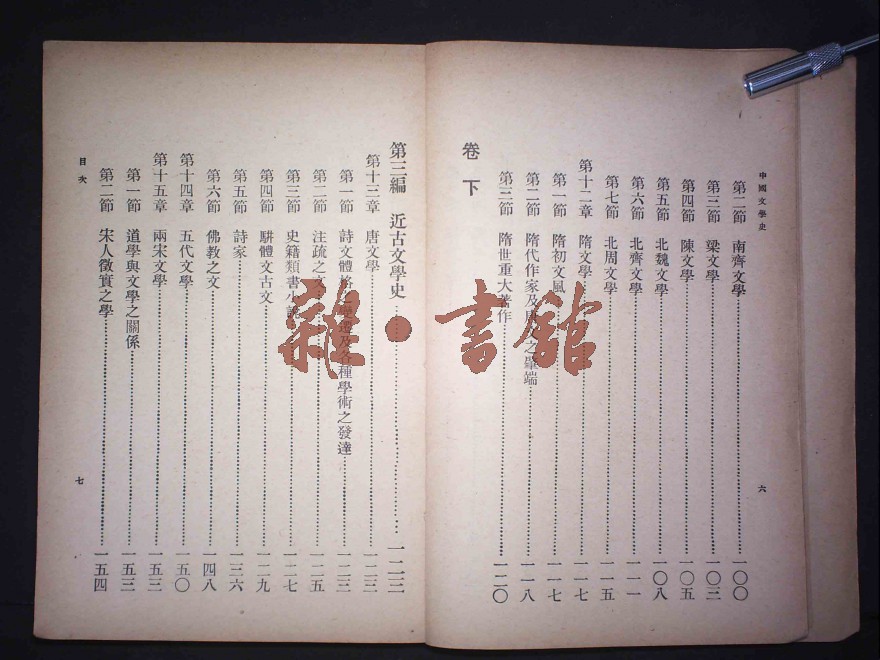 中國文學史
第二節 南齊文學……一〇〇
第三節 梁文學……一〇三
第四節 陳文學……一〇五
第五節 北魏文學……一〇八
第六節 北齊文學……一一一
第七節 北周文學……一一五
第十二章 隋文學……一一七
第一節 隋初文風……一一七
第二節 隋代作家及之肇端……一一八
第三節 隋世重大著作……一二〇
卷下
六
第三編 近古文學史……一二三
第十三章 唐文學……一二三
第一節 詩文體格及各種學術之發達……一二三
第二節 注疏之文……一二五
第三節 史籍類書小說……一二七
第四節 駢體文古文……一二九
第五節 詩家……一三六
第六節 佛教之文……一四八
第十四章 五代文學……一五〇
第十五章 兩宋文學……一五三
第一節 道學與文學之關係……一五三
第二節 宋人徵實之學……一五四
目次
七
雜·書館